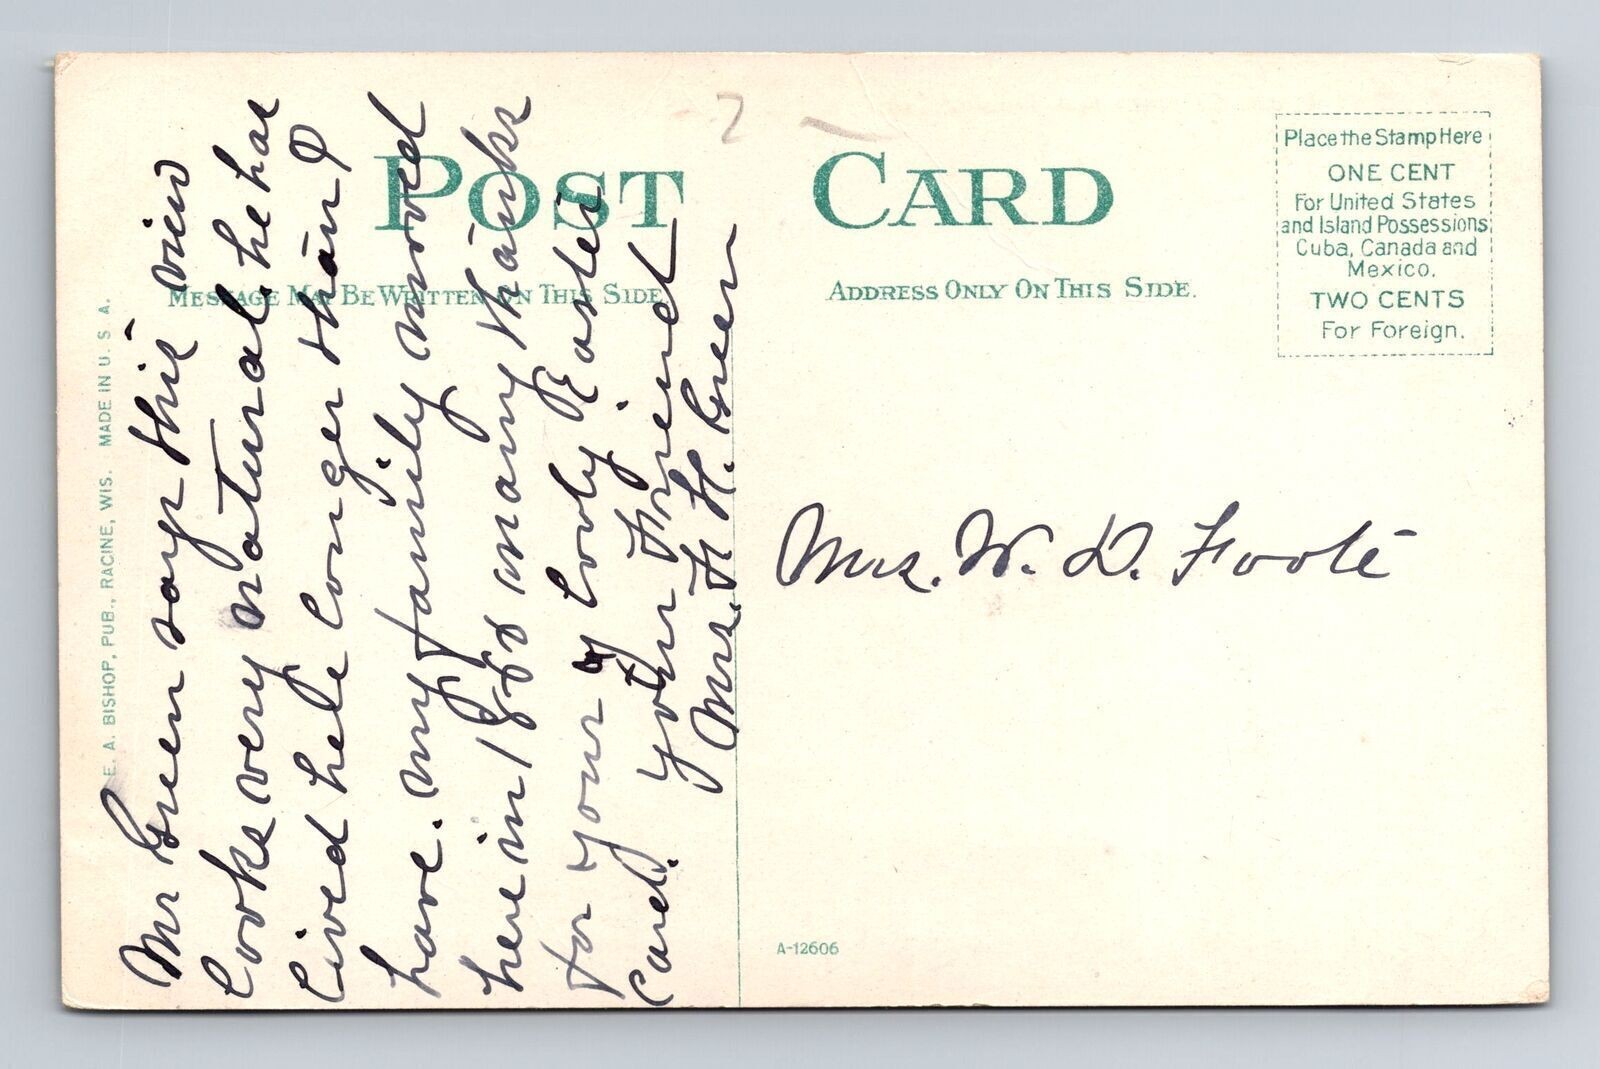 POST CARD
MESSAGE MAY BE WRITTEN ON THIS SIDE
ADDRESS ONLY ON THIS SIDE.
Place the Stamp Here
ONE CENT
For United States
and Island Possessions
Cuba, Canada and
Mexico.
TWO CENTS
For Foreign.
E. A. BISHOP, PUB., RACINE, WIS. MADE IN U. S. A.
Mr Green says this view
looks very natural. he has
lived here longer than I
have. my family moved
here in 1888 many thanks
for your lovly Easter
Card. your Friend
Mrs. F. H. Green
Mrs. W. D. Foote
A-12606
2